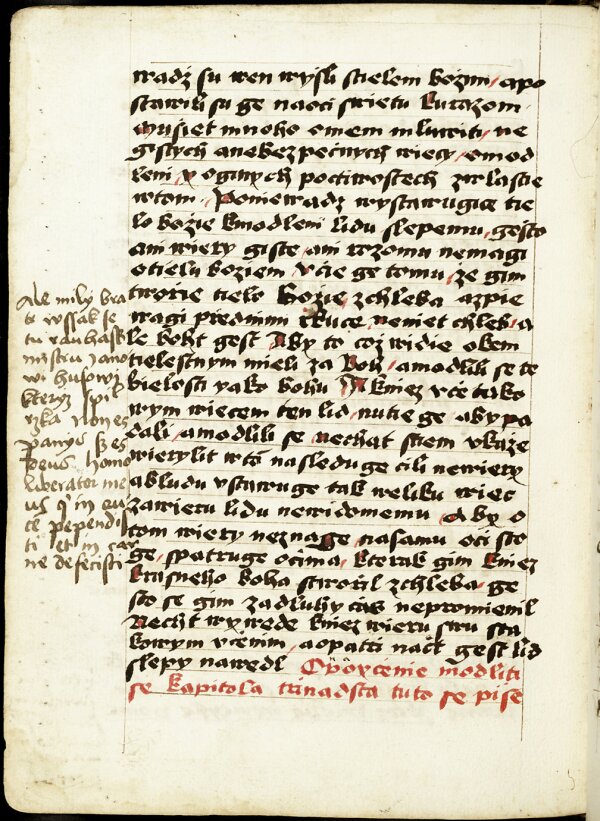 wradz su wen wyssli s tielem bozim apo
stawili su ge naoci swietu kurazom
musiet mnoho omem mluwiti ne
gistych anebezpecnych wiecy omod
leni y oginych poctiwostech zwlastie
wtom Poniewadz wystawugice tie
lo bozie kmodleni lidu slepemu gesto
ani wiery giste ani rozomu nemagi
otielu boziem vcie ge tomu ze gim
tworzie tielo bozie zchleba azpie
wagi przednimi rkuce neniet chleb a
le boht gest aby to coz widie okem
tielestnym mieli za boh amodlili se te
bielosti yako bohu A kniez vce tako
wym wiecem ten lid nutie ge aby pa
dali amodlili se nechat siem vkaze
wierylit w to nasleduge cili newiery
abludu vstawuge tak weliku wiec
zawieru lidu newidomemu Aby o
tom wiery neznage nasamu oci sto
ge spatruge ocima kterak gim kniez
krasneho boha stworzil zchleba ge
sto se gim zadluhy cas nepromienil
Necht wywede kniez wieru swu sta
kowym vcenim aopatri nact gest lid
slepy nawedl Opoycenie modliti
se kapitola trinadsta tuto se pise
Ale mily bra
te wssak se
tu rauhass
mistru Jano
wi husowi
kteryz spi
wa Non es
panys sz es
Deus homo
liberator me
us q in cru
ce pependis
ti et in car
ne defecisti